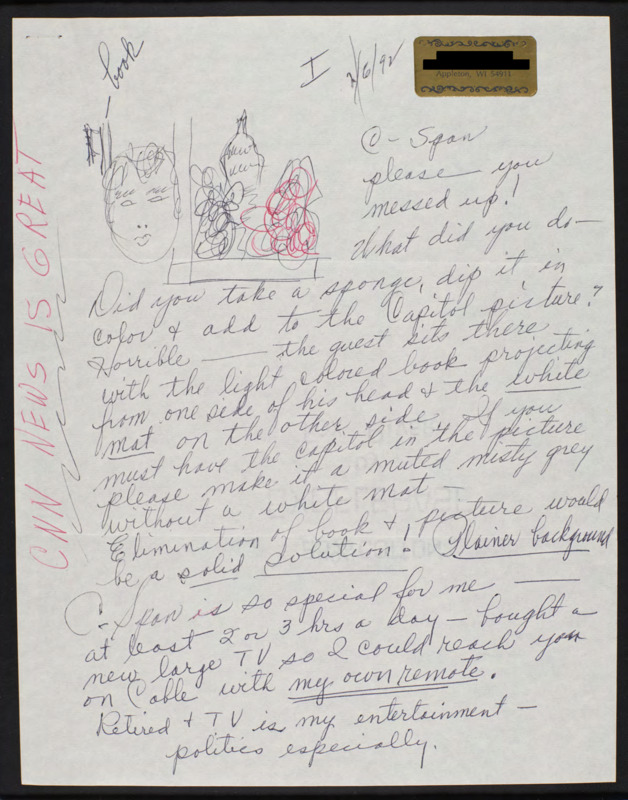 — book
I
2/6/92
Appleton, WI 54911
C-Span
please you
messed up!
What did you do—
Did you take a sponge, dip it in
color & add to the Capitol picture?
Horrible —— the guest sits there
with the light colored book projecting
from one side of his head & the white
mat on the other side. If you
must have the capitol in the picture
please make it a muted misty grey
without a white mat —
Elimination of book & picture would
be a solid solution! (Plainer background
C-Span is so special for me ——
at least 2 or 3 hrs a day — bought a
new large TV so I could reach you
on Cable with my own remote.
Retired & TV is my entertainment —
politics especially.
CNN NEWS IS GREAT